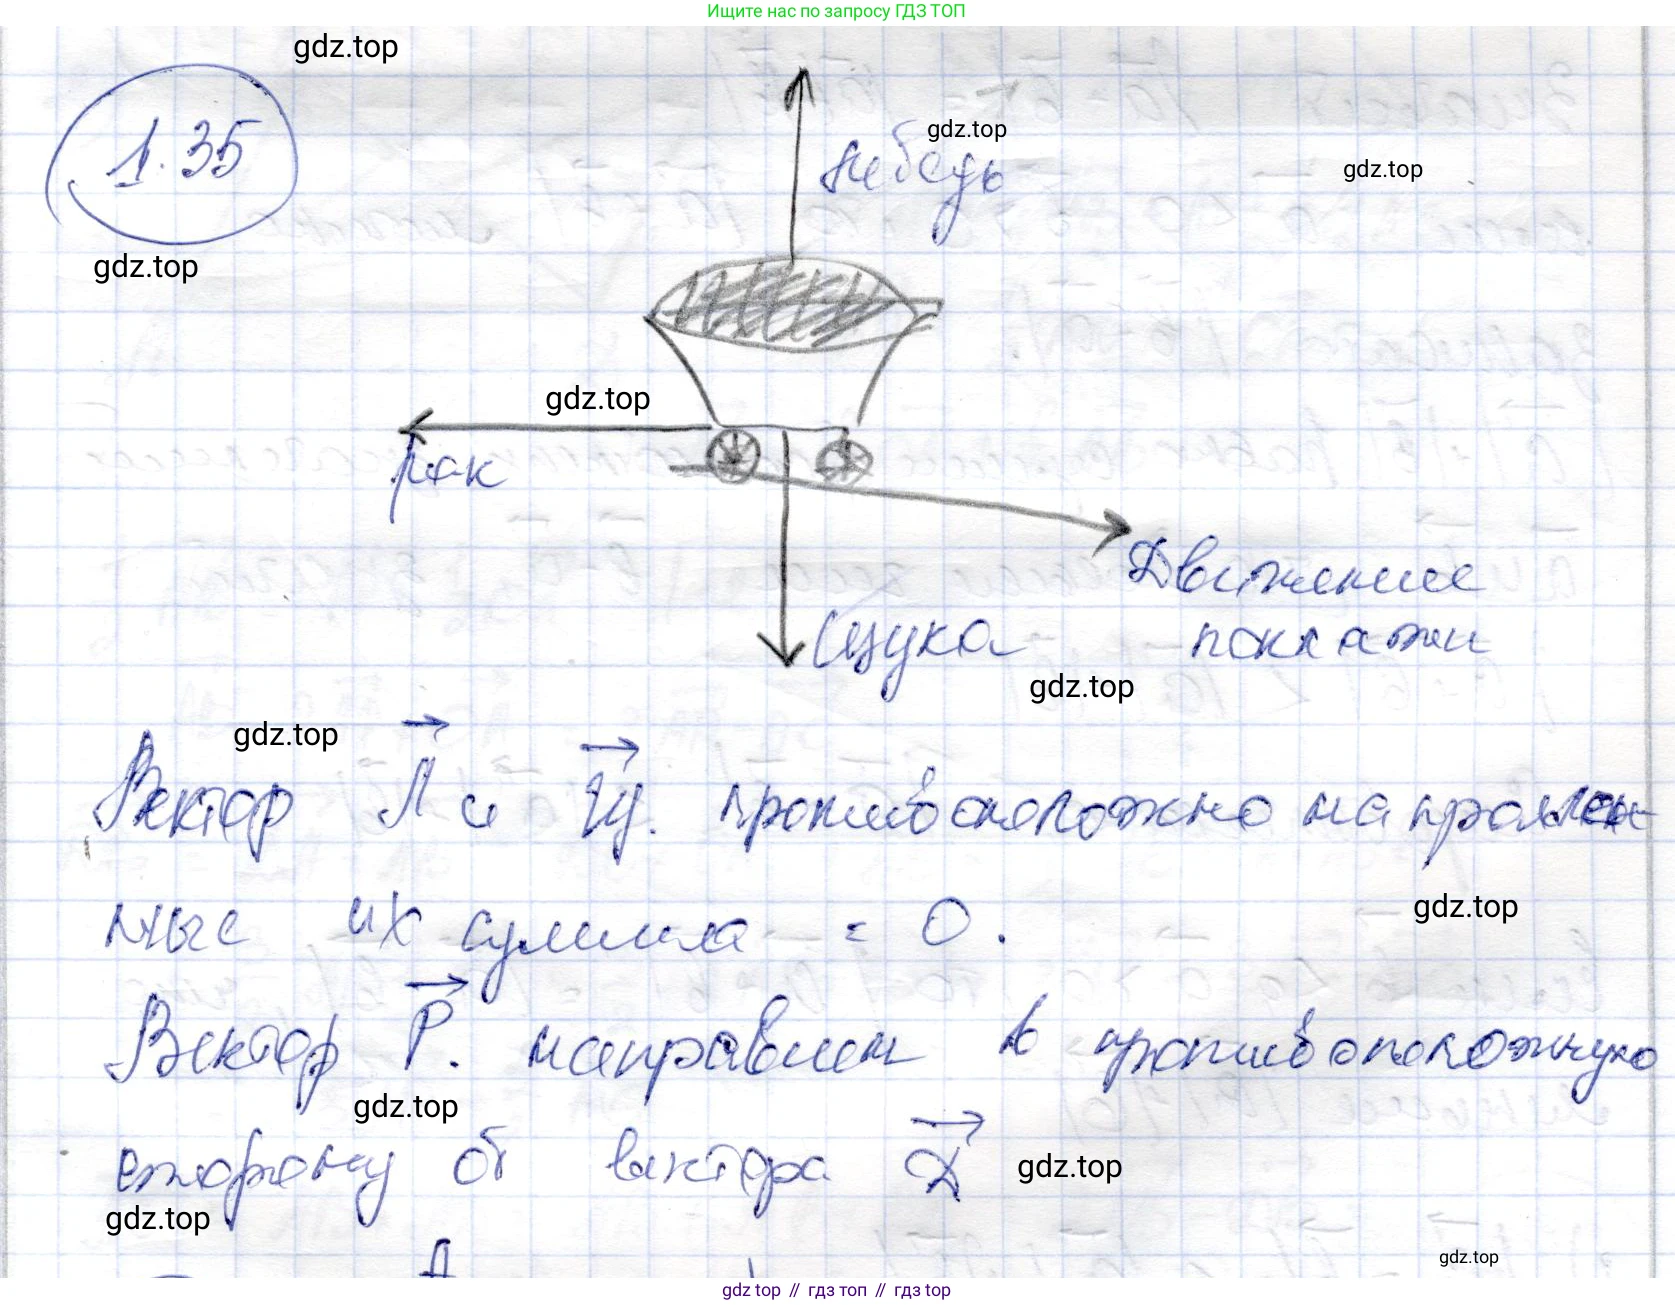 Ищите нас по запросу ГДЗ ТОП
gdz.top
1.35
gdz.top
лебедь
gdz.top
gdz.top
gdz.top
рак
Движение
поклажи
щука
gdz.top
gdz.top
Вектор Л и Щ. противоположно направлен-
ные их сумма = 0.
gdz.top
Вектор Р. направлен в противоположную
gdz.top
сторону от вектора Д
gdz.top
gdz.top
gdz.top
gdz top // гдз топ // гдз top